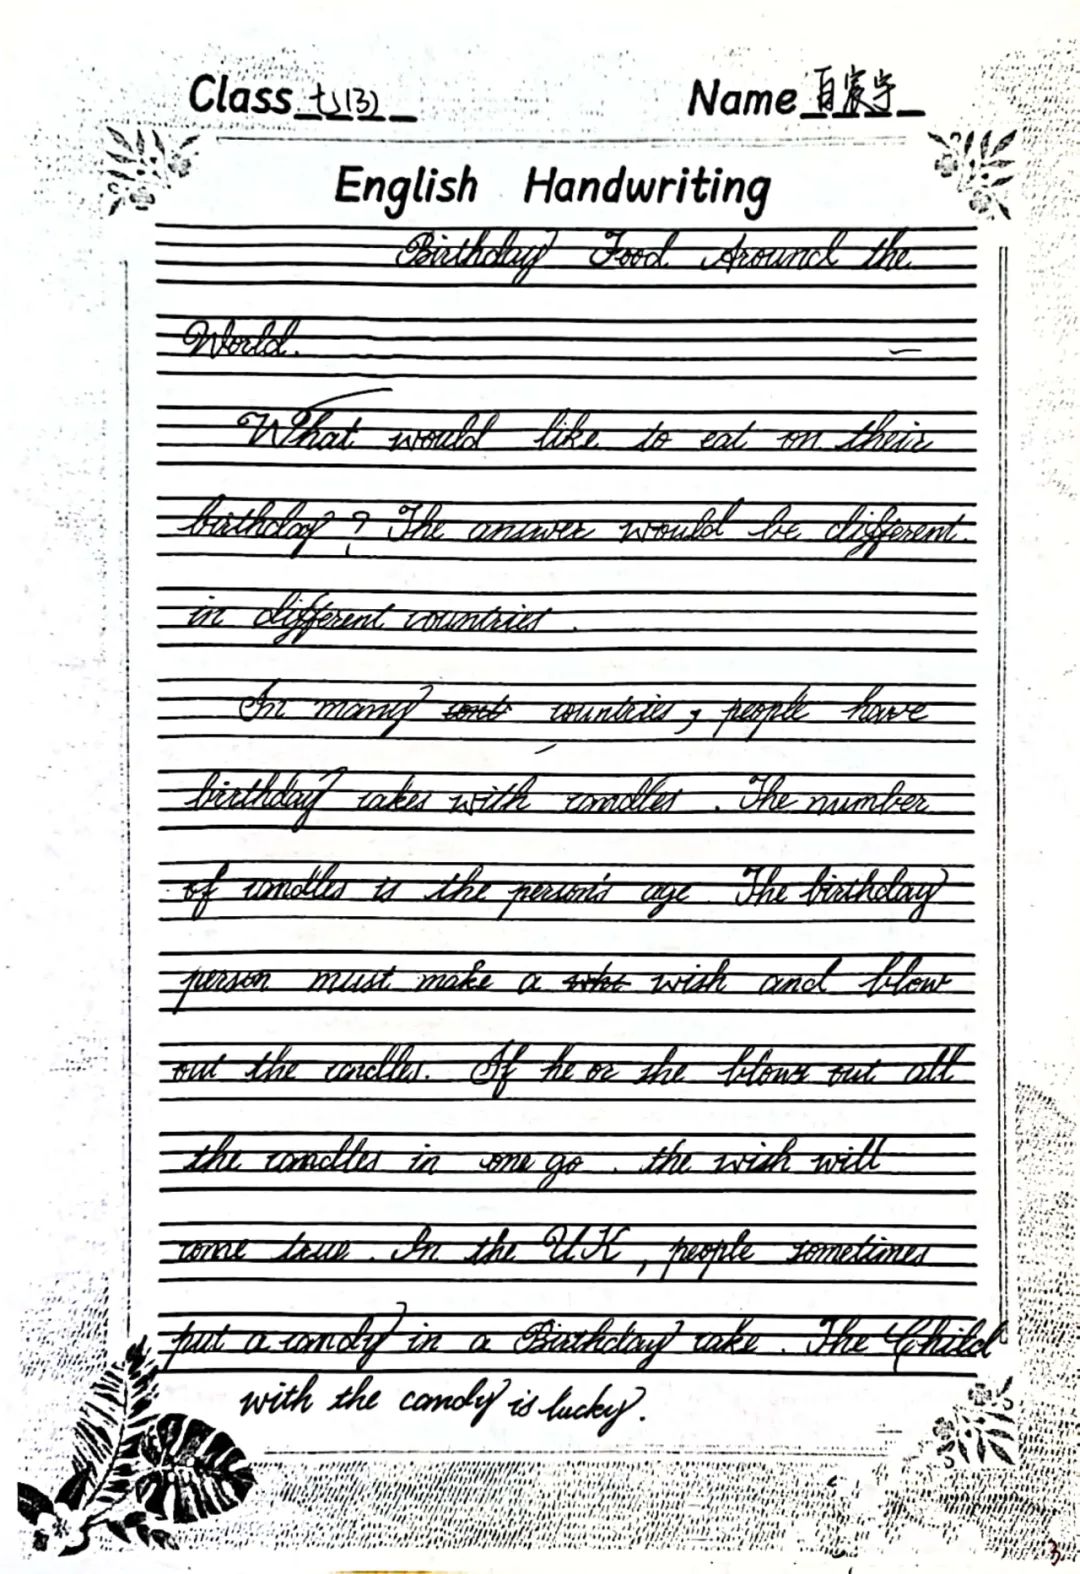 Class 七(3) Name 百家宇
English Handwriting
Birthday Food Around the
World.
What would like to eat on their
birthday? The answer would be different
in different countries.
In many countries, people have
birthday cakes with candles. The number
of candles is the person's age. The birthday
person must make a wish and blow
out the candles. If he or she blows out all
the candles in one go. the wish will
come true. In the UK, people sometimes
put a candy in a Birthday cake. The Child
with the candy is lucky.
3